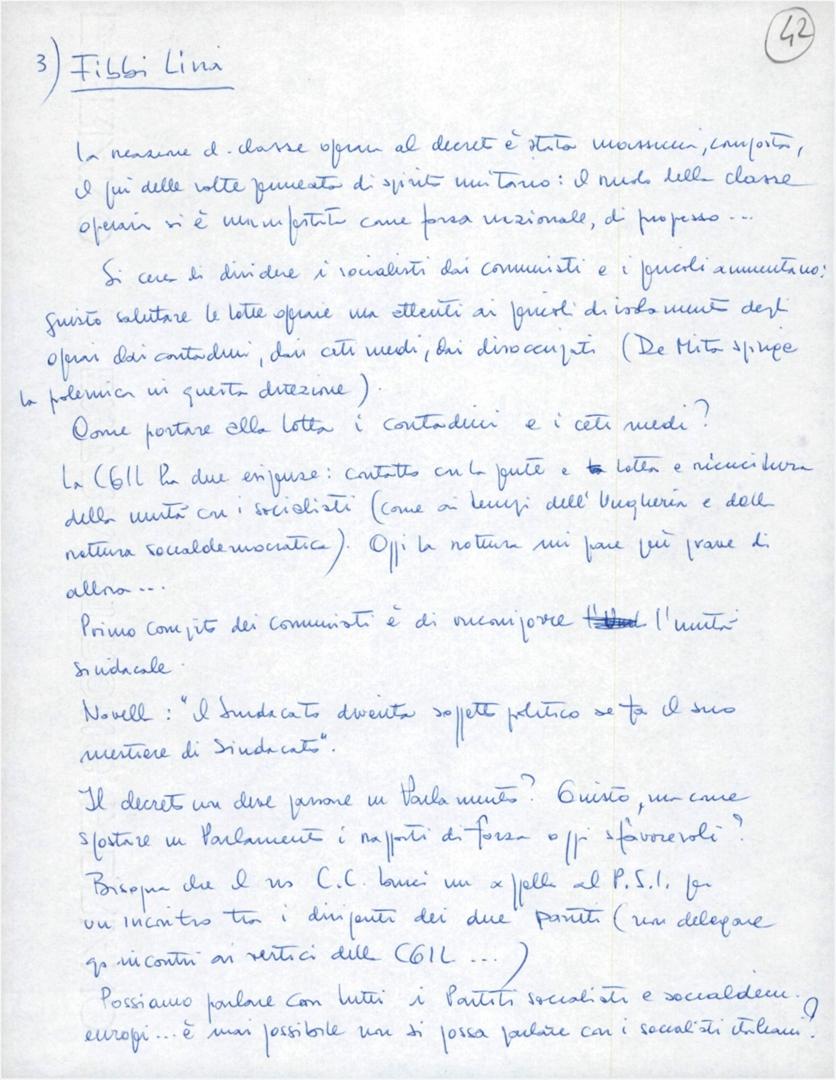 42
3) Fibbi Lina
La reazione d. classe operaia al decreto è stata massiccia, composta,
il più delle volte permeata di spirito unitario: il ruolo della classe
operaia si è manifestato come forza nazionale, di progresso ...
Si cerca di dividere i socialisti dai comunisti e i pericoli aumentano:
giusto salutare le lotte operaie ma attenti ai pericoli di isolamento degli
operai dai contadini, dai ceti medi, dai disoccupati (De Mita spinge
la polemica in questa direzione).
Come portare alla lotta i contadini e i ceti medi?
La CGIL ha due esigenze: contatto con la gente e lotta e ricucitura
della unità con i socialisti (come ai tempi dell'Ungheria e della
rottura socialdemocratica). Oggi la rottura mi pare più grave di
allora ...
Primo compito dei comunisti è di ricomporre l'unità
sindacale.
Novella: "il Sindacato diventa soggetto politico se fa il suo
mestiere di Sindacato".
Il decreto non deve passare in Parlamento? Giusto, ma come
spostare in Parlamento i rapporti di forza oggi sfavorevoli?
Bisogna che il ns C.C. lanci un appello al P.S.I. per
un incontro tra i dirigenti dei due partiti (non delegare
gli incontri ai vertici della CGIL ...)
Possiamo parlare con tutti i Partiti socialisti e socialdem.
europei ... è mai possibile non si possa parlare con i socialisti italiani?